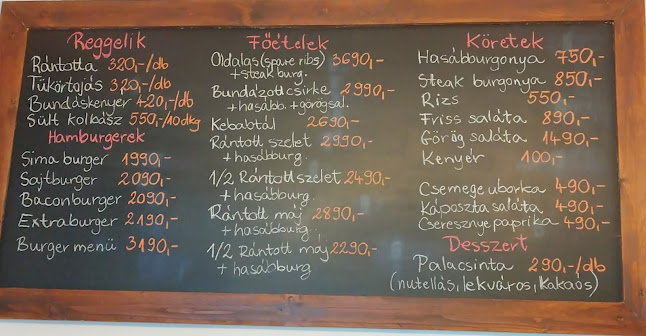 Reggelik
Rántotta 320,-/db
Tükörtojás 320,-/db
Bundáskenyér 420,-/db
Sült kolbász 550,-/10dkg
Hamburgerek
Sima burger 1990,-
Sajtburger 2090,-
Baconburger 2090,-
Extraburger 2190,-
Burger menü 3190,-
Főételek
Oldalas (spare ribs) 3690,-
+ steak burg.
Bundázott csirke 2990,-
+ hasább. + görögsal.
Kebabtál 2690,-
Rántott szelet 2990,-
+ hasábburg.
1/2 Rántott szelet 2490,-
+ hasábburg.
Rántott máj 2890,-
+ hasábburg.
1/2 Rántott máj 2290,-
+ hasábburg
Köretek
Hasábburgonya 750,-
Steak burgonya 850,-
Rizs 550,-
Friss saláta 890,-
Görög saláta 1490,-
Kenyér 100,-
Csemege uborka 490,-
Káposzta saláta 490,-
Cseresznye paprika 490,-
Desszert
Palacsinta 290,-/db
(nutellás, lekváros, kakaós)